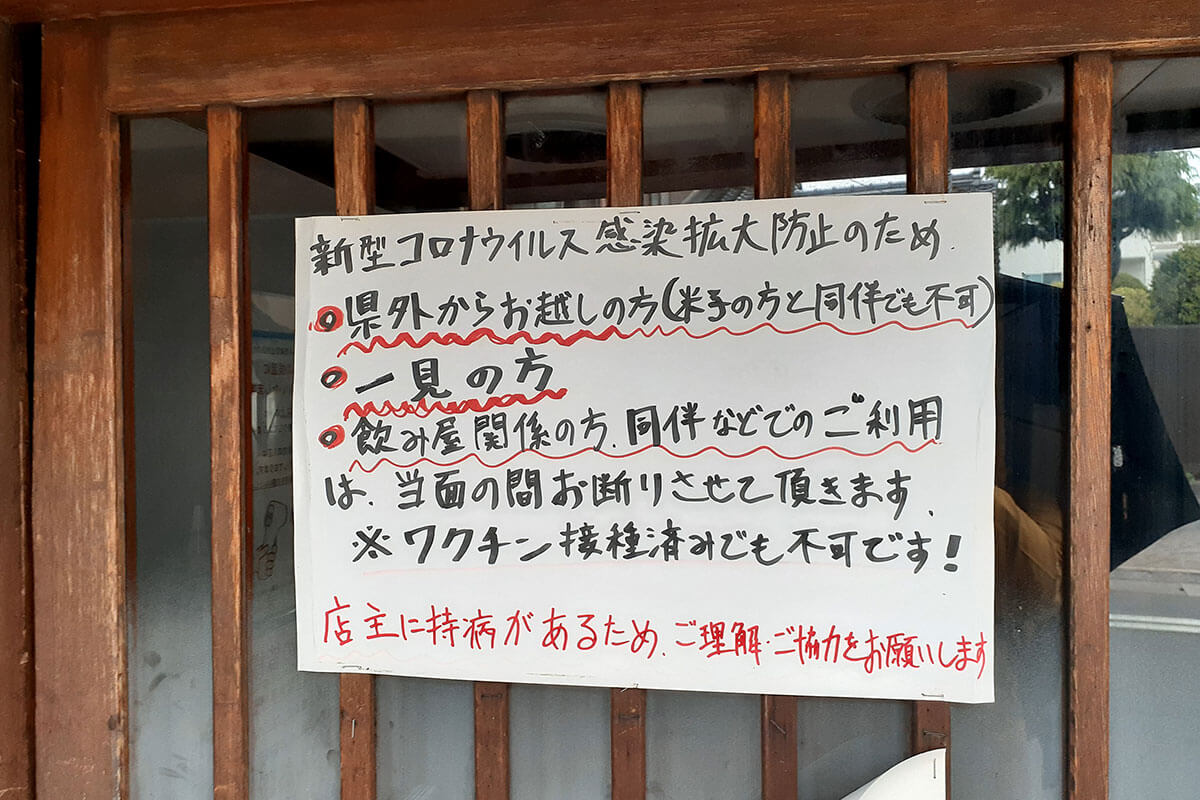 新型コロナウイルス感染拡大防止のため、
◎県外からお越しの方(米子の方と同伴でも不可)
◎一見の方
◎飲み屋関係の方、同伴などでのご利用
は、当面の間お断りさせて頂きます。
※ワクチン接種済みでも不可です!
店主に持病があるため、ご理解・ご協力をお願いします